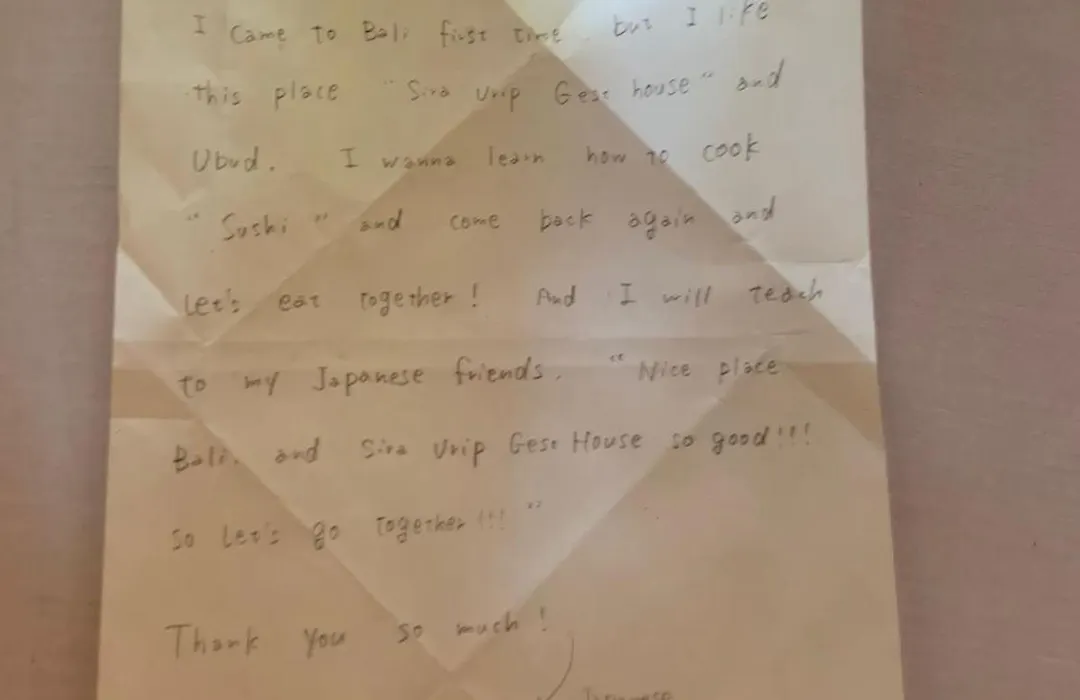 I came to Bali first time, but I like
this place "Sira Urip Gest house" and
Ubud. I wanna learn how to cook
"Sushi" and come back again and
Let's eat together! And I will teach
to my Japanese friends. "Nice place
Bali. and Sira Urip Gest House so good!!!
so Let's go together!!!"
Thank you so much!
Japanese